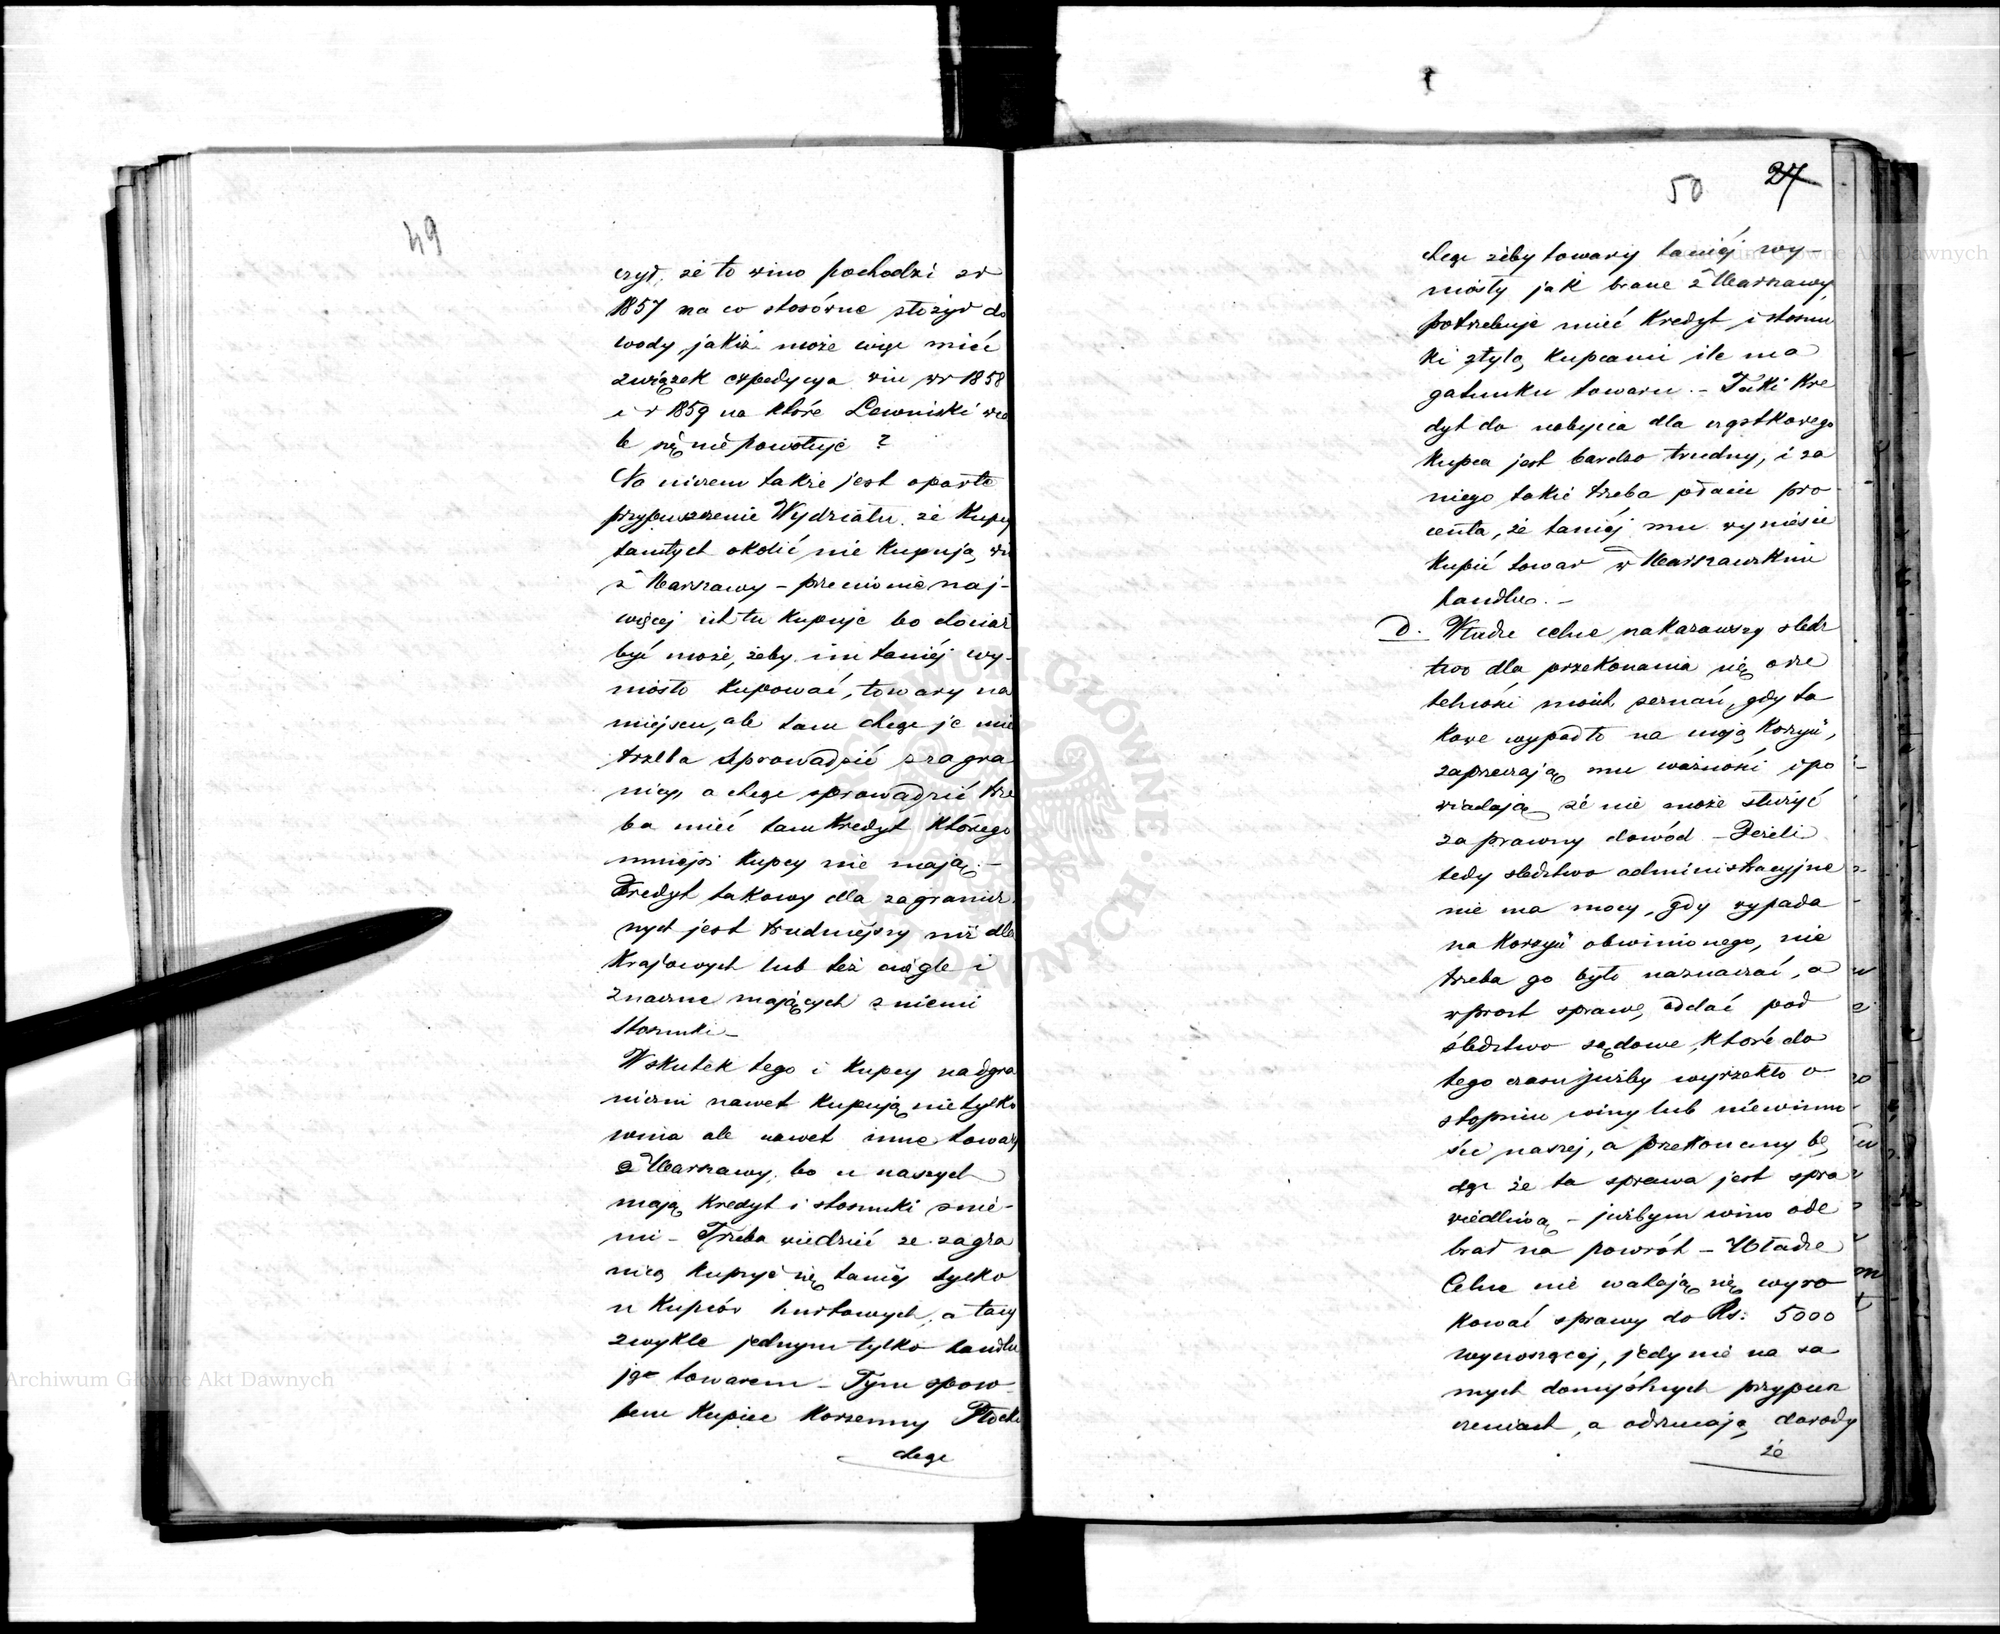 49
czył, że to wino pochodzi z r
1857 na co stosówne złożył do
wody, jakiż może więc mieć
związek expedycya win w r 1858
i r 1859 na które Lewinski wca
le się nie powołuje ?
Na niczem także jest oparte
przypuszczenie Wydziału, że Kupcy
tamtych okolic nie Kupują wi
z Warszawy – przeciwnie naj-
więcej ich tu Kupuje bo chociaż
być może, żeby im taniéj wy-
niosło Kupować, towary na
miejscu, ale tam chcąc je mie
trzeba sprowadzić z zagra
nicy, a chcąc sprowadzić trze
ba mieć tam Kredyt którego
mniejsi Kupcy nie mają. –
Kredyt takowy dla zagranicz
nych jest trudniejszy niż dla
Krajowych lub też ciągle i
znaczne mających z niemi
stosunki –
Wskutek tego i Kupcy nadgra
niczni nawet Kupują nietylko
wina ale nawet inne towary
z Warszawy, bo u naszych
mają Kredyt i stosunki z nie-
mi – Trzeba wiedzieć że zagra
nicą Kupuje się taniéj tylko
u Kupców hurtowych, a tacy
zwykle jednym tylko handlu
ją towarem – Tym sposo
bem Kupiec Korzenny Płocki
chcąc
50 27
chcąc żeby towary taniéj wy-
niosły jak brane z Warszawy,
potrzebuje mieć Kredyt i stosun
ki z tylą Kupcami ile ma
gatunku towaru. – Taki Kre
dyt do nabycia dla cząstkowego
Kupca jest bardzo trudny, i za
niego takie trzeba płacić pro-
centa, że taniéj mu wyniesie
Kupić towar w Warszawskim
handlu. –
D. Władze celne, nakazawszy śledz
two dla przekonania się o rze
telności moich zeznań, gdy ta
kowe wypadło na moją Korzyść,
zaprzeczają mu ważności i po
wiadają że nie może służyć
za prawny dowód – Jeżeli
tedy śledztwo administracyjne
nie ma mocy, gdy wypada
na Korzyść obwinionego, nie
trzeba go było naznaczać, a
wprost sprawę oddać pod
śledztwo sądowe, które do
tego czasu jużby wyrzekło o
stopniu winy lub niewinno
ści naszej, a przekonany bę
dąc że ta sprawa jest spra
wiedliwą – jużbym wino ode
brał na powrót – Władze
Celne nie wahają się wyro
kować sprawy do Rs: 5000
wynoszącej, jedynie na sa
mych domyślnych przypusz
czeniach, a odrzucają dowody
że